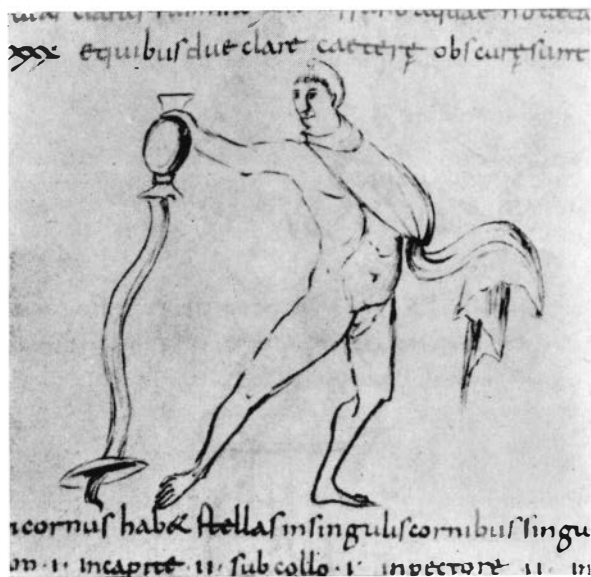 xxx equibus due clare caeterę obscurę sunt
cornus hab& stellas in singulis cornibus singu
on · i · in capite · ii · sub collo · i · in pectore · ii · in